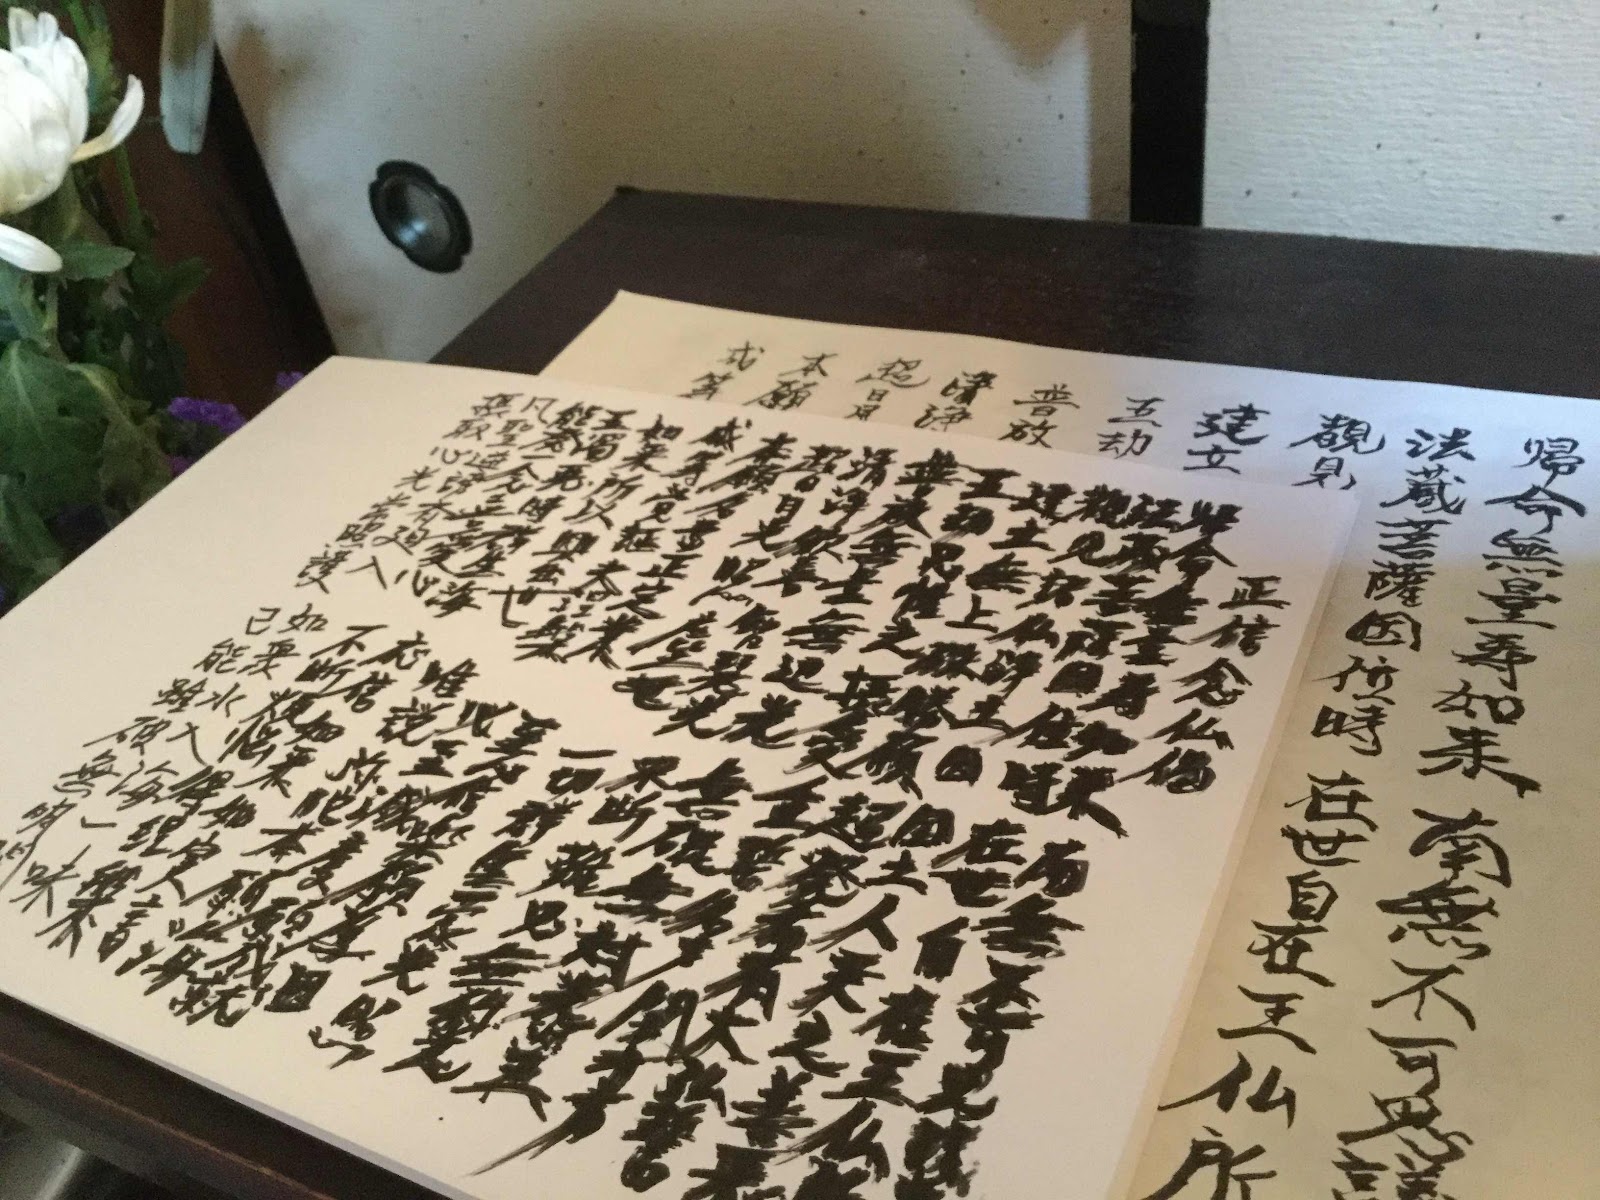 帰命無量寿如来 南無不可思議
法蔵菩薩因位時 在世自在王仏所
覩見
建立
五劫
普放
清浄
超日月
本願
成等
正信念仏偈
帰命無量寿如来 南無不可思議
法蔵菩薩因位時 在世自在王仏
覩見諸仏浄土因 国土人天之善悪
建立無上殊勝願 超発希有大弘誓
五劫思惟之摂受 重誓名声
普放無量無辺光 無碍無対光炎
清浄歓喜智慧光 不断難思無称光
超日月光照塵 一切群生蒙光照
本願名号正定業 至心信楽願為因
成等覚証大涅槃 必至滅度願成就
如来所以興出世 唯説弥陀本願海
五濁悪時群生海 応信如来如実言
能発一念喜愛心 不断煩悩得涅槃
凡聖逆謗斉回入 如衆水入海一味
摂取心光常照護 已能雖破無明闇